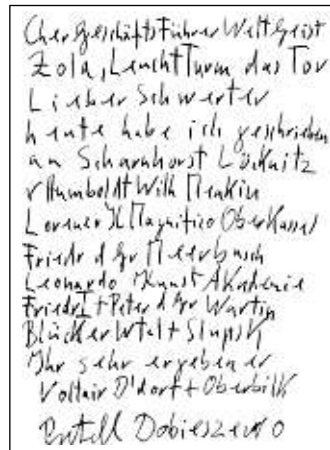 Cher Geschäftsführer Weltgeist
Zola, Leuchtturm das Tor
Lieber Schwerter
heute habe ich geschrieben
an Scharnhorst Löcknitz
v Humboldt Wilh Menkin
Lorenzer Il Magnifico Oberkassel
Friedr d Gr Meerbusch
Leonardo Kunst Akademie
Friedr I + Peter d Gr Wartin
Blücker + Slupsk
Ihr sehr ergebener
Voltair D'dorf + Oberbilk
Dobieszewo